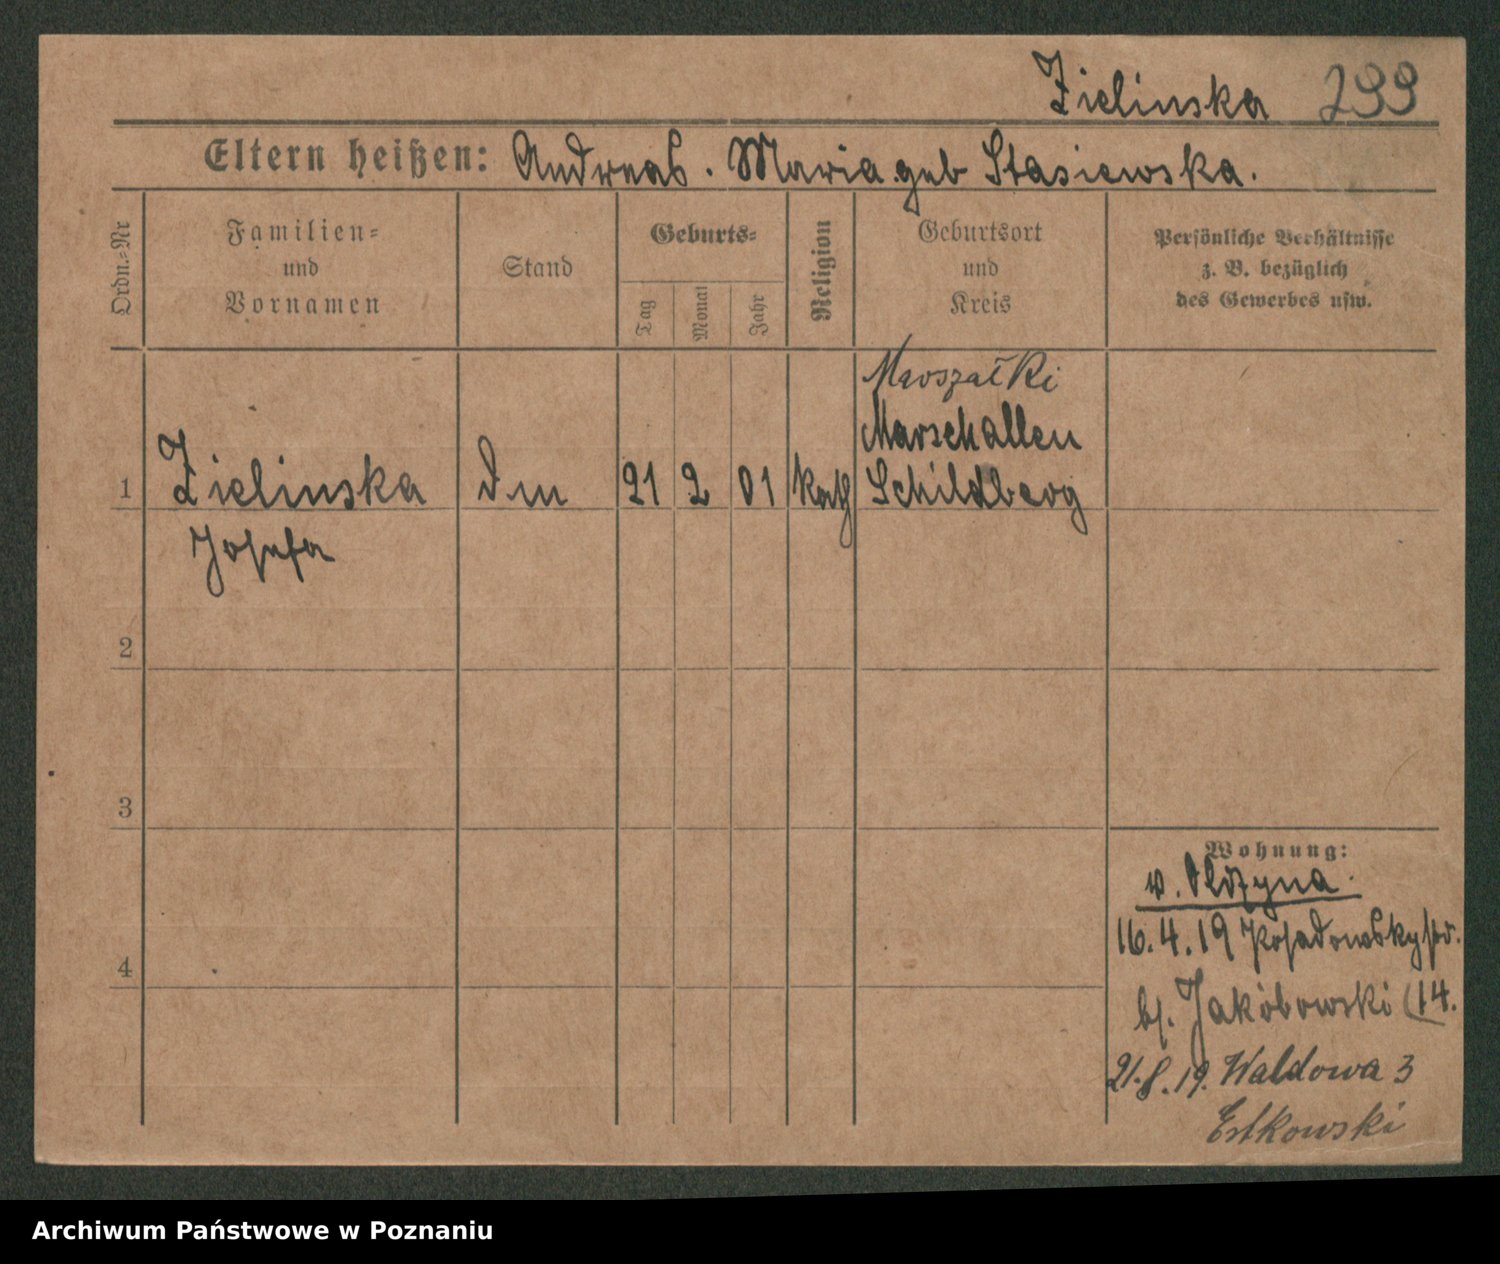 Zielinska 299
Eltern heißen: Andreas. Maria geb Stasiewska.
Ordn.-Nr
Familien-
und
Vornamen
Stand
Geburts-
Tag
Monat
Jahr
Religion
Geburtsort
und
Kreis
Persönliche Verhältnisse
z. B. bezüglich
des Gewerbes usw.
Marszałki
Marschallen
1 Zielinska 21 2 01 kath Schildberg
Josefa
2
3
4
Wohnung:
v. Olszyna.
16.4.19 Posadowskystr.
b/. Jakóbowski (14.
21.8.19. Waldowa 3
Estkowski
Archiwum Państwowe w Poznaniu